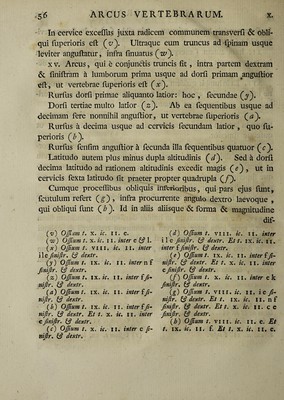 56 ARCUS VERTEBRARUM. X.
In cervice excessus juxta radicem communem transversi & obli-
qui superioris est (v). Ultraque cum truncus ad spinam usque
leviter angustatur, infra sinuatus (w).
xv. Arcus, qui è conjunctis truncis fit, intra partem dextram
& sinistram à lumborum prima usque ad dorsi primam angustior
est, ut vertebrae superioris est (x).
Rursus dorsi primae aliquanto latior: hoc, secundae (y).
Dorsi tertiae multo latior (z). Ab ea sequentibus usque ad
decimam fere nonnihil angustior, ut vertebrae superioris (a).
Rursus à decima usque ad cervicis secundam latior, quo su-
perioris (b).
Rursus sensim angustior à secunda illa sequentibus quatuor (c).
Latitudo autem plus minus dupla altitudinis (d). Sed à dorsi
decima latitudo ad rationem altitudinis excedit magis (e), ut in
cervicis sexta latitudo sit praeter propter quadrupla (f).
Cumque processibus obliquis inferioribus, qui pars ejus sunt,
scutulum refert (g), infra procurrente angulo dextro laevoque,
qui obliqui sunt (h). Id in aliis aliisque & forma & magnitudine
dif-
(v) Ossium t. x. ic. 11. c.
(w) Ossium t. x. ic. 11. inter c & l.
(x) Ossium t. VIII. ic. 11. inter
i l e sinistr. & dextr.
(y) Ossium t. IX. ic. 11. inter n f
sinistr. & dextr.
(z) Ossium t. IX. ic. 11. inter f si-
nistr. & dextr.
(a) Ossium t. IX. ic. 11. inter f si-
nistr. & dextr.
(b) Ossium t. IX. ic. 11. inter f si-
nistr. & dextr. Et t. X. ic. 11. inter
c sinistr. & dextr.
(c) Ossium t. X. ic. 11. inter c si-
nistr. & dextr.
(d) Ossium t. VIII. ic. 11. inter
i l e sinistr. & dextr. Et t. IX. ic. 11.
inter f sinistr. & dextr.
(e) Ossium t. IX. ic. 11. inter f si-
nistr. & dextr. Et t. X. ic. 11. inter
c sinistr. & dextr.
(f) Ossium t. X. ic. 11. inter c k
sinistr. & dextr.
(g) Ossium t. VIII. ic. 11. i e si-
nistr. & dextr. Et t. IX. ic. 11. n f
sinistr. & dextr. Et t. X. ic. 11. c e
sinistr. & dextr.
(h) Ossium t. VIII. ic. 11. e. Et
t. IX. ic. 11. f. Et t. X. ic. 11. e.